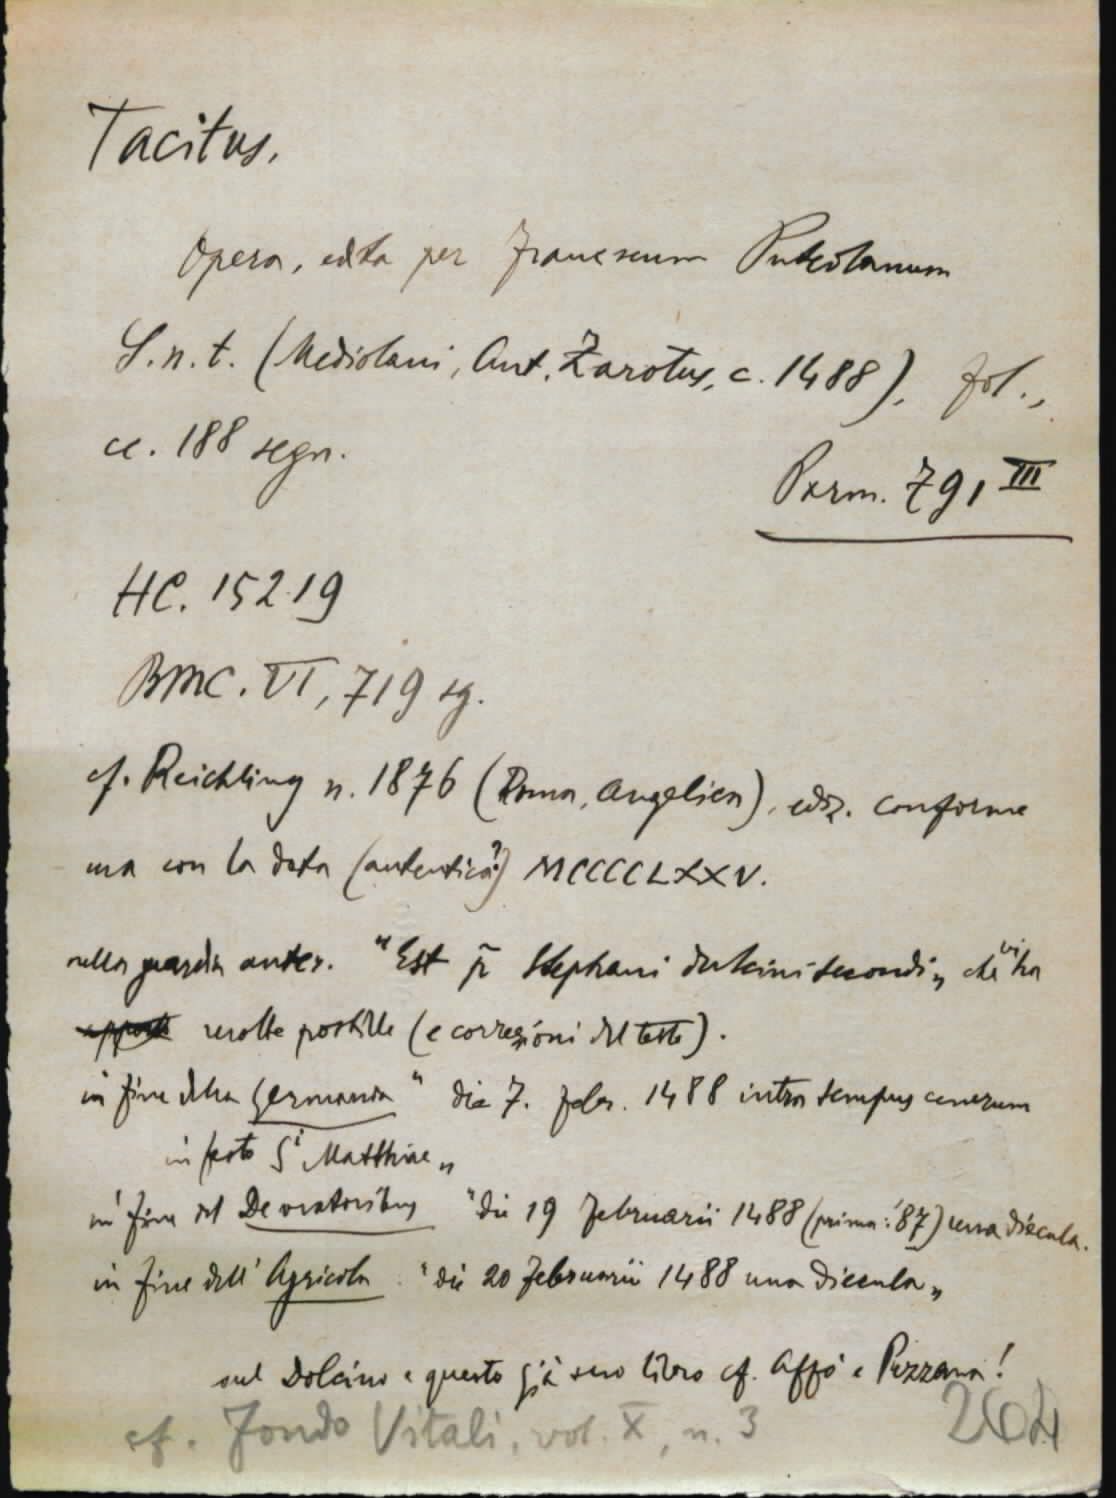 Tacitus,
Opera, edita per Franciscum Puteolanum
S.n.t. (Mediolani, Ant. Zarotus, c. 1488), fol.,
cc. 188 segn.
Parm. 791 III
HC. 15219
BMC. VI, 719 sg.
cf. Reichling n. 1876 (Roma, Angelica), ediz. conforme
ma con la data (autentica?) MCCCCLXXV.
nella guardia anter. "Est Stephani dulcini secondi" che vi ha
molte postille (e correzioni del testo).
in fine della Germania "die 7. febr. 1488 intra tempus cinerum
in festo Si Matthiae"
in fine del De oratoribus "die 19 Februarii 1488 (prima: '87) una diecula.
in fine dell' Agricola "die 20 Februarii 1488 una diecula"
sul Dolcino e questo già suo libro cf. Affò e Pezzana!
cf. Fondo Vitali, vol. X, n. 3
264